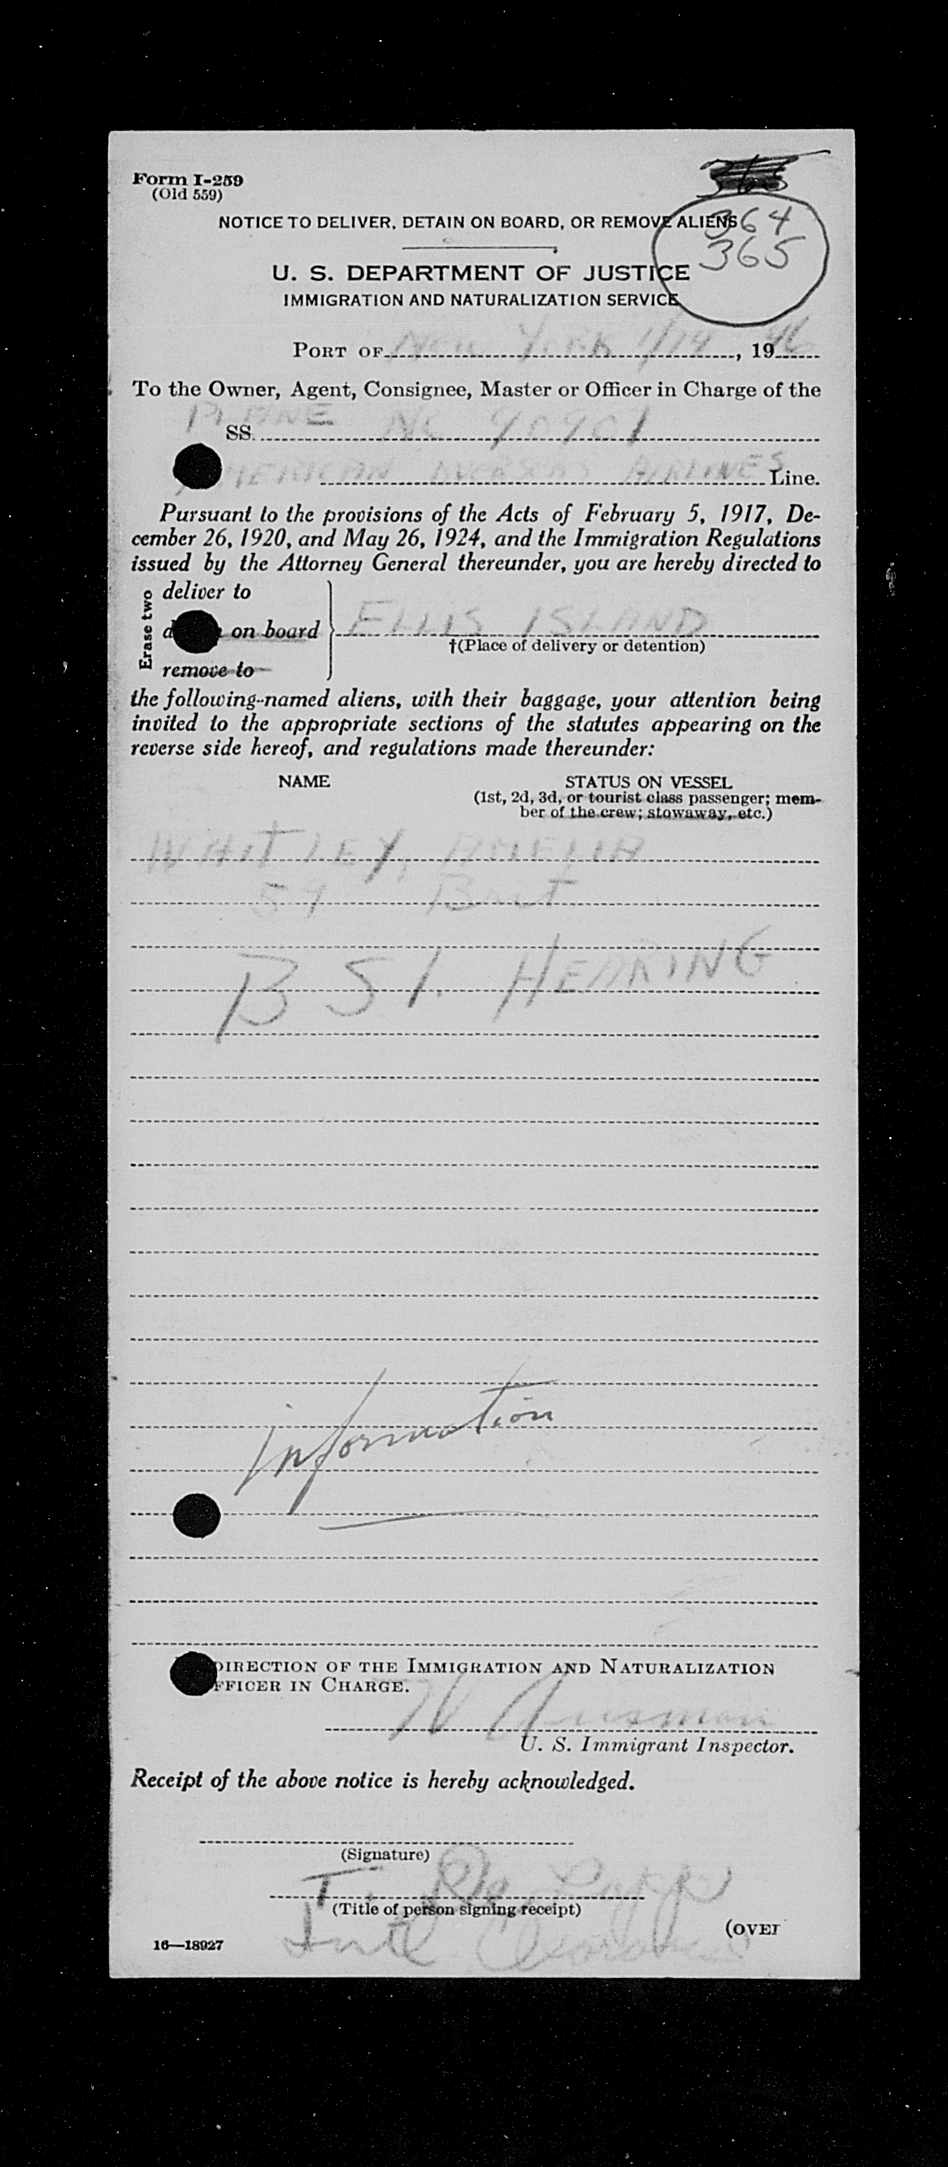 Form I-259
(Old 559)
364
365
NOTICE TO DELIVER, DETAIN ON BOARD, OR REMOVE ALIENS
U. S. DEPARTMENT OF JUSTICE
IMMIGRATION AND NATURALIZATION SERVICE
PORT OF New York 1/14, 1946
To the Owner, Agent, Consignee, Master or Officer in Charge of the
PLANE
SS. NC 90901
AMERICAN OVERSEAS AIRLINES Line.
Pursuant to the provisions of the Acts of February 5, 1917, De-
cember 26, 1920, and May 26, 1924, and the Immigration Regulations
issued by the Attorney General thereunder, you are hereby directed to
Erase two
deliver to
on board ELLIS ISLAND
†(Place of delivery or detention)
remove to
the following-named aliens, with their baggage, your attention being
invited to the appropriate sections of the statutes appearing on the
reverse side hereof, and regulations made thereunder:
NAME STATUS ON VESSEL
(1st, 2d, 3d, or tourist class passenger; mem-
ber of the crew; stowaway, etc.)
WHITLEY, AMELIA
59 Brit
BSI. HEARING
information
DIRECTION OF THE IMMIGRATION AND NATURALIZATION
OFFICER IN CHARGE.
U. S. Immigrant Inspector.
Receipt of the above notice is hereby acknowledged.
(Signature)
(Title of person signing receipt)
(OVER
16—18927